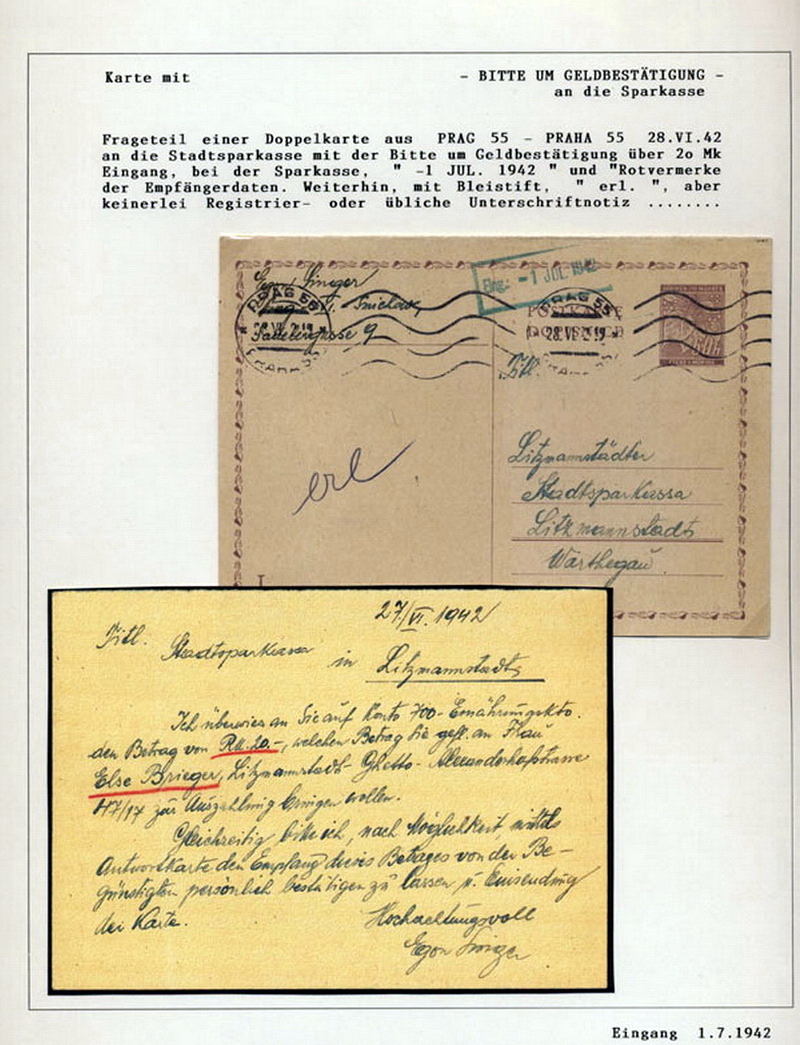 Karte mit
- BITTE UM GELDBESTÄTIGUNG -
an die Sparkasse
Frageteil einer Doppelkarte aus PRAG 55 - PRAHA 55 28.VI.42
an die Stadtsparkasse mit der Bitte um Geldbestätigung über 2o Mk
Eingang, bei der Sparkasse, " -1 JUL. 1942 " und "Rotvermerke
der Empfängerdaten. Weiterhin, mit Bleistift, " erl. ", aber
keinerlei Registrier- oder übliche Unterschriftnotiz ........
Egon Singer
9
PRAG 55
PRAHA 55
Eing.: -1 JUL. 1942
POSTKARTE
DOPISNICE
PRAG 55
28.VI.42 19
Titl.
Litzmannstädter
Stadtsparkassa
Litzmannstadt
Warthegau
erl
27/VI. 1942
Titl. Stadtsparkassa in Litzmannstadt
Ich überweis an Sie auf Konto 700- Ernährungskto.
den Betrag von RM. 20.-, welchen Betrag Sie gefl. an Frau
Else Brieger, Litzmannstadt- Ghetto- Alexanderhofstrasse
/17 zur Auszahlung bringen wollen.
Gleichzeitig bitte ich, nach Möglichkeit, mittels
Antwortkarte den Empfang dieses Betrages von der Be-
günstigten persönlich bestätigen zu lassen u. Einsendung
der Karte.
Hochachtungsvoll
Egon Singer
Eingang 1.7.1942